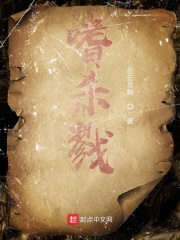 嗜杀戮
著
起点中文网